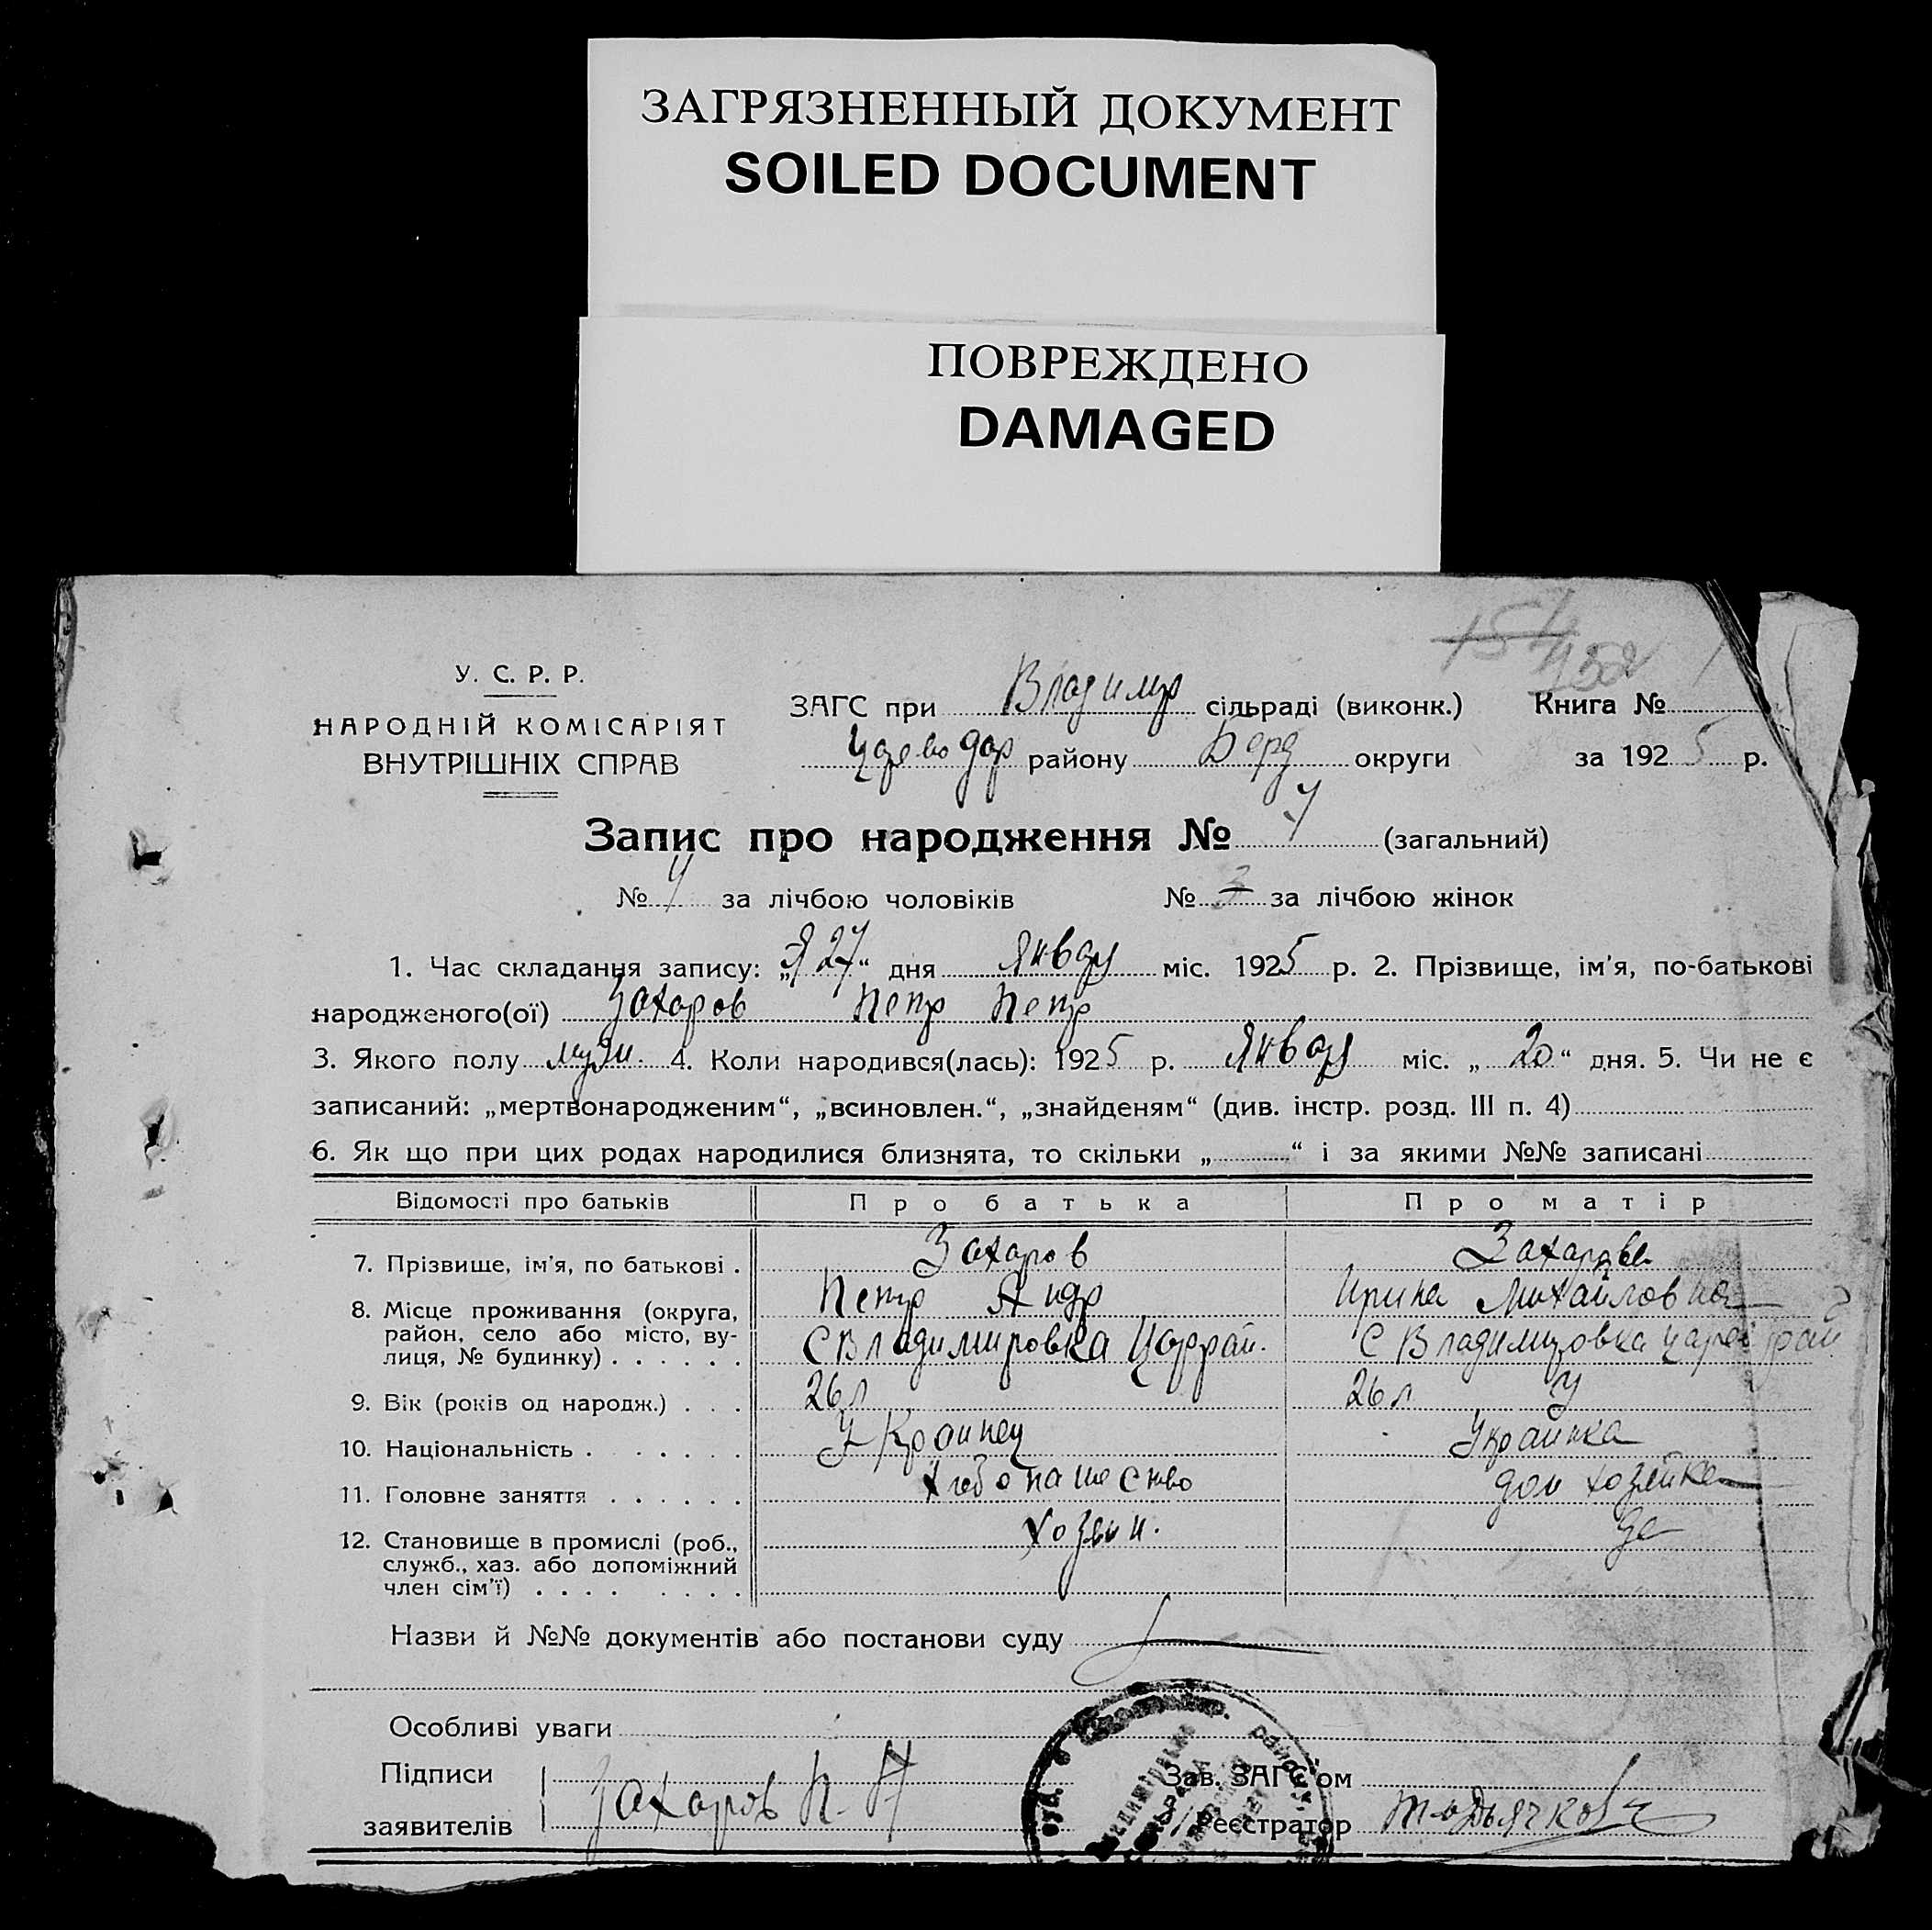 ЗАГРЯЗНЕННЫЙ ДОКУМЕНТ
SOILED DOCUMENT
ПОВРЕЖДЕНО
DAMAGED
У. С. Р. Р.
НАРОДНІЙ КОМІСАРІЯТ
ВНУТРІШНІХ СПРАВ
ЗАГС при Владимир сільраді (виконк.) Книга №
району Берд округи за 1925 р.
Запис про народження № 7 (загальний)
№ 4 за лічбою чоловіків № 3 за лічбою жінок
1. Час складання запису: „27“ дня Январ міс. 1925 р. 2. Прізвище, ім'я, по-батькові
народженого(ої) Захаров Петр Петр
3. Якого полу муж. 4. Коли народився(лась): 1925 р. Январ міс. „20“ дня. 5. Чи не є
записаний: „мертвонародженим“, „всиновлен.“, „знайденям“ (див. інстр. розд. III п. 4)
6. Як що при цих родах народилися близнята, то скільки „ “ і за якими №№ записані
Відомості про батьків Про батька Про матір
7. Прізвище, ім'я, по батькові . Захаров Захарова
Петр Андр Ирина Михайловна
8. Місце проживання (округа, район, село або місто, вулиця, № будинку) . . . . . . С Владимировка Цар рай. С Владимировка рай
9. Вік (років од народж.) . . . 26 л 26 л
10. Національність . . . . . . Украинец Украинка
11. Головне заняття . . . . . . Хлебопашество дом хозяйка
12. Становище в промислі (роб., служб., хаз. або допоміжний член сім'ї) . . . . . . . . хозяин.
Назви й №№ документів або постанови суду
Особливі уваги
Підписи
заявителів Захаров П. А
Зав. ЗАГС'ом
Реєстратор
району